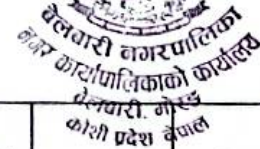 बेलवारी नगरपालिका
नगर कार्यपालिकाको कार्यालय
बेलवारी, मोरङ
कोशी प्रदेश नेपाल